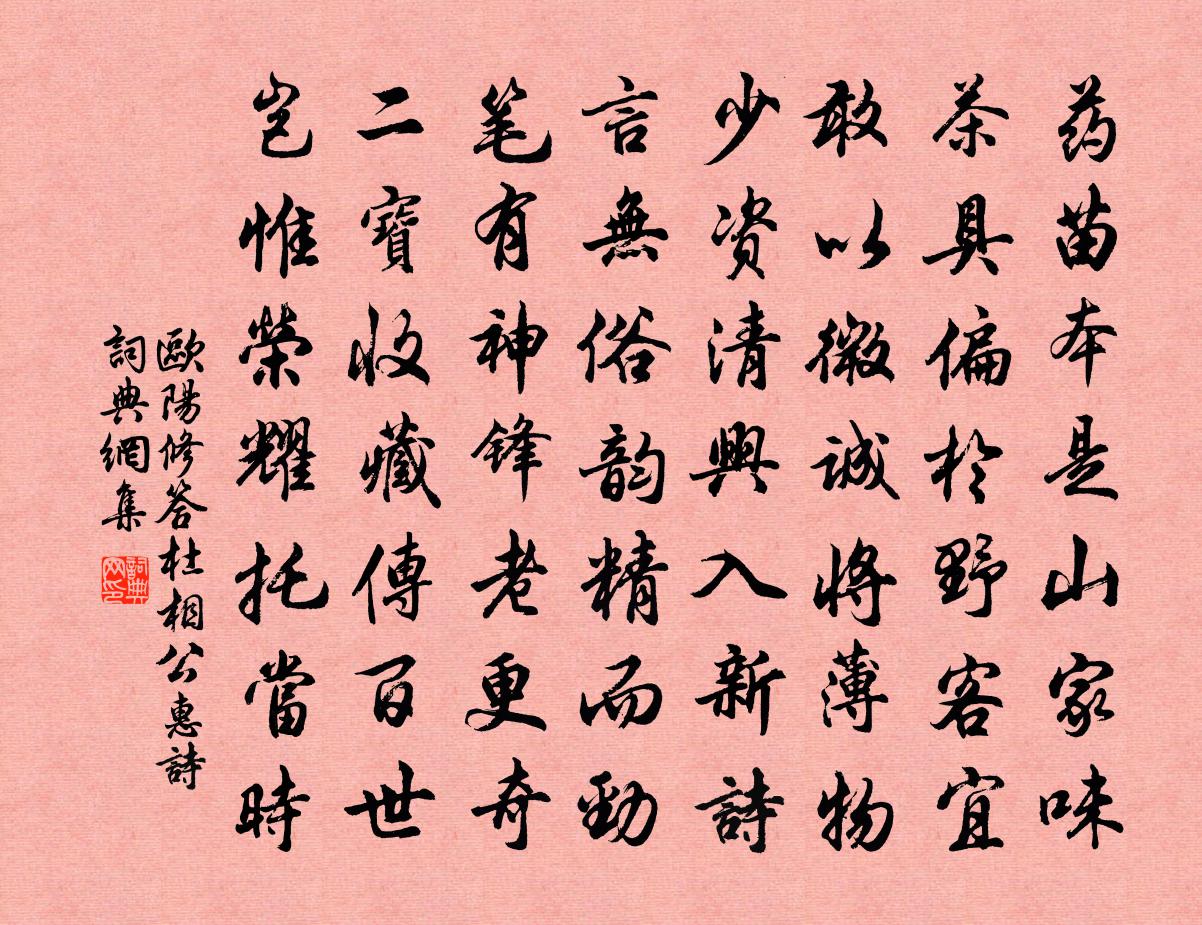 药苗本是山家味
茶具偏於野客宜
敢以微诚将薄物
少资清興入新詩
言無俗韵精而勁
笔有神锋老更奇
二寶收藏傳百世
岂惟榮耀托當時
歐陽修答杜相公惠詩
詞典網集
詞典网印